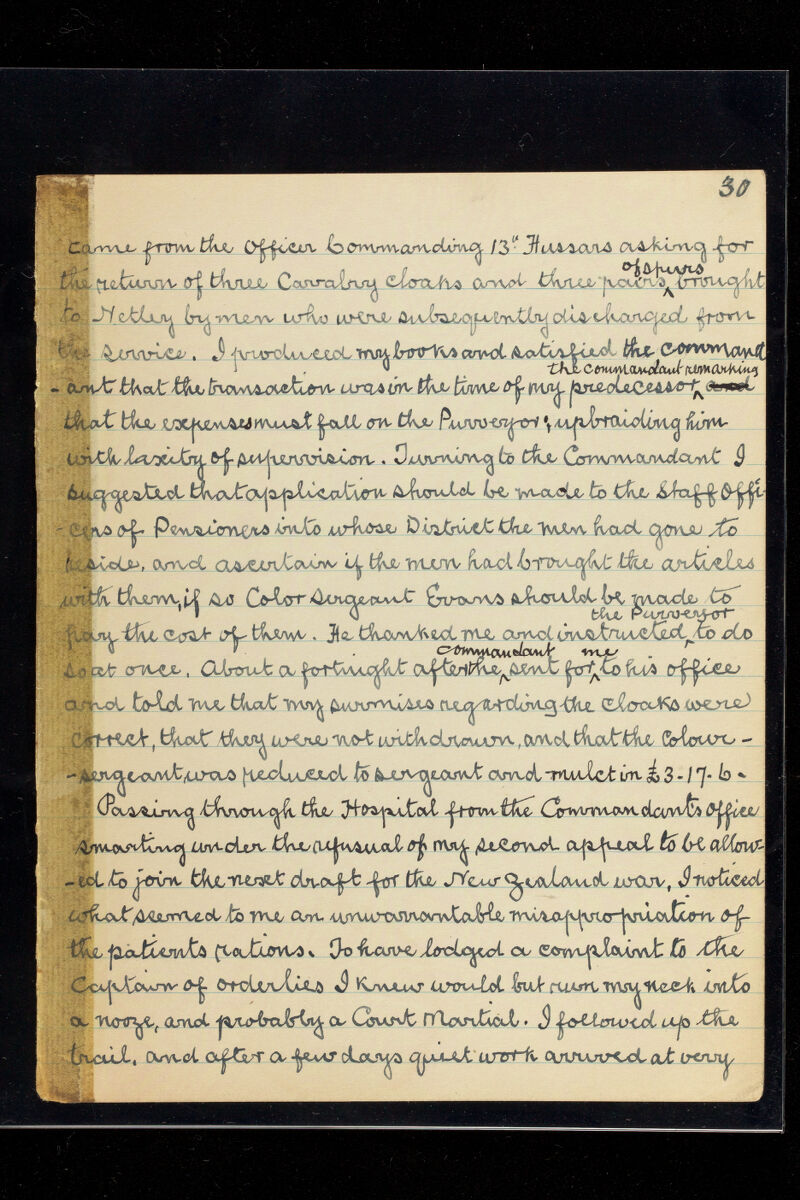 30
came from the Officer Commanding 13" Hussars asking for
the return of three Cavalry cloaks and three pairs of spurs brought
to Netley by men who were subsequently discharged from
the service. I produced my books and satisfied the command
- ant that the transaction was in the time of my predecessor, the Commandant remarking and
that the expenses must fall on the Purveyor; upbraiding him
with laxity of supervision. Turning to the Commandant I
suggested that application should be made to the Staff Offi-
- cers of Pensioners into whose District the men had gone to
reside, and ascertain if the men had brought the articles
with them, if so Color Sergeant Evans should be made to
pay the cost of them. He thanked me and instructed the Purveyor to do
so at once. About a fortnight after the commandant sent for me to his office
and told me that my surmises regarding the cloaks were
correct, that they were not withdrawn, and that the Colour -
- sergeant was reduced to sergeant and mulct in £3-17-6.
Passing through the Hospital from the Commandant's office
smarting under the refusual of my second appeal to be allow-
- ed to join the next draft for the New Zealand war, I noticed
what seemed to me an unwarrantable misappropriation of
the patients rations. To have lodged a complaint to the
Captain of orderlies I knew would but run my neck into
a nooze, and probably a Court Martial. I followed up the
trail, and after a few days quiet work arrived at very